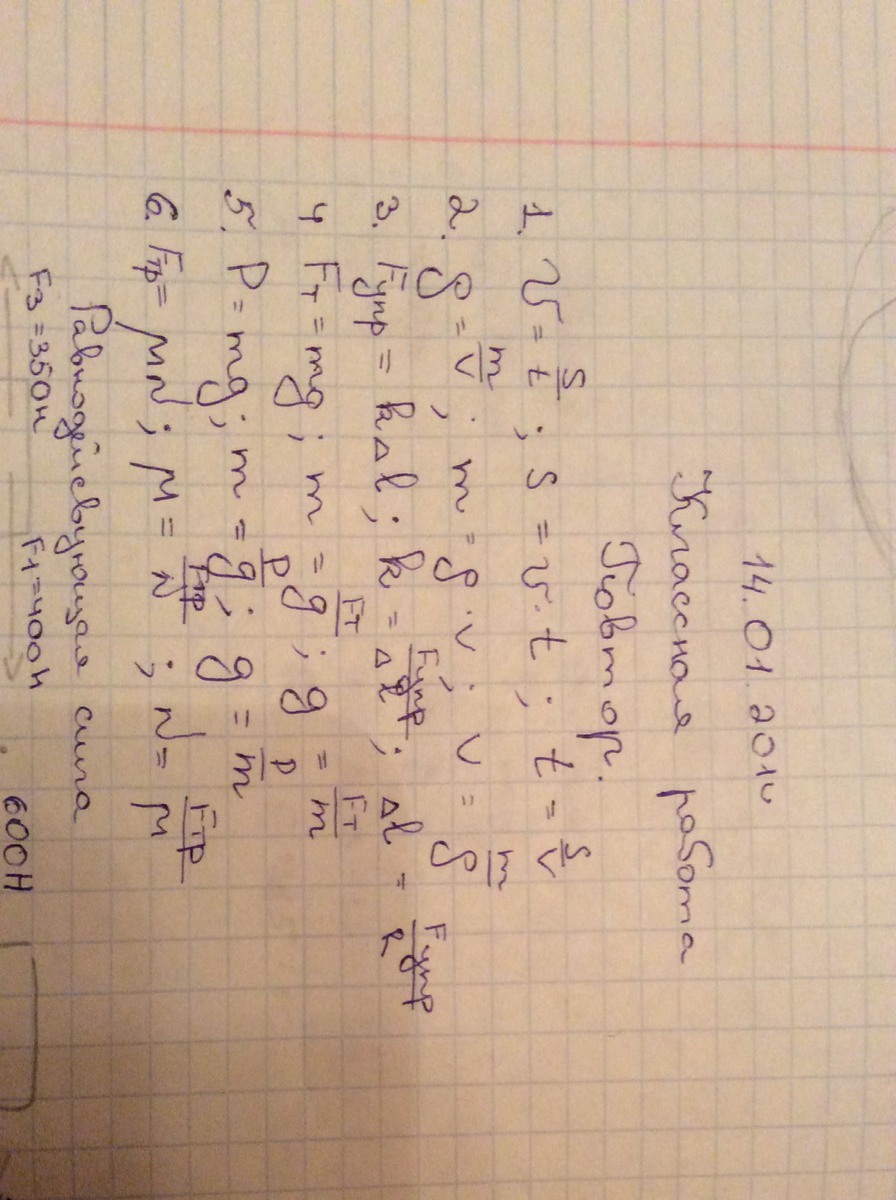 14.01.201
Классная работа
Повтор.
1. v = s/t ; s = v·t ; t = s/v
2. ρ = m/v ; m = ρ·v ; v = m/ρ
3. Fупр = kΔl ; k = Fупр/Δl ; Δl = Fупр/k
4 Fт = mg ; m = Fт/g ; g = Fт/m
5. P = mg ; m = P/g ; g = P/m
6. Fтр = μN ; μ = Fтр/N ; N = Fтр/μ
Равнодействующая сила
F3 = 350н F1 = 400н 600Н